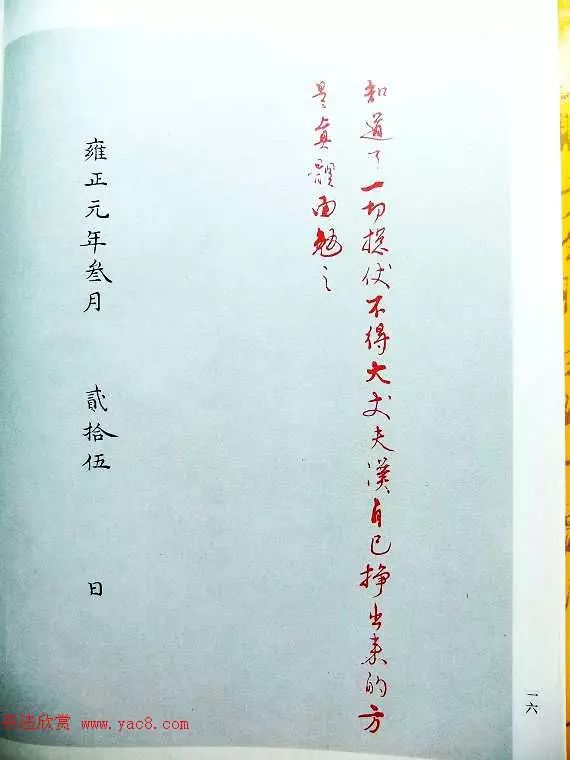 知道了一切捴仗不得大丈夫漢自己挣出来的方
是真體面勉之
雍正元年叁月 貳拾伍 日
一六
书法欣赏 www.yac8.com